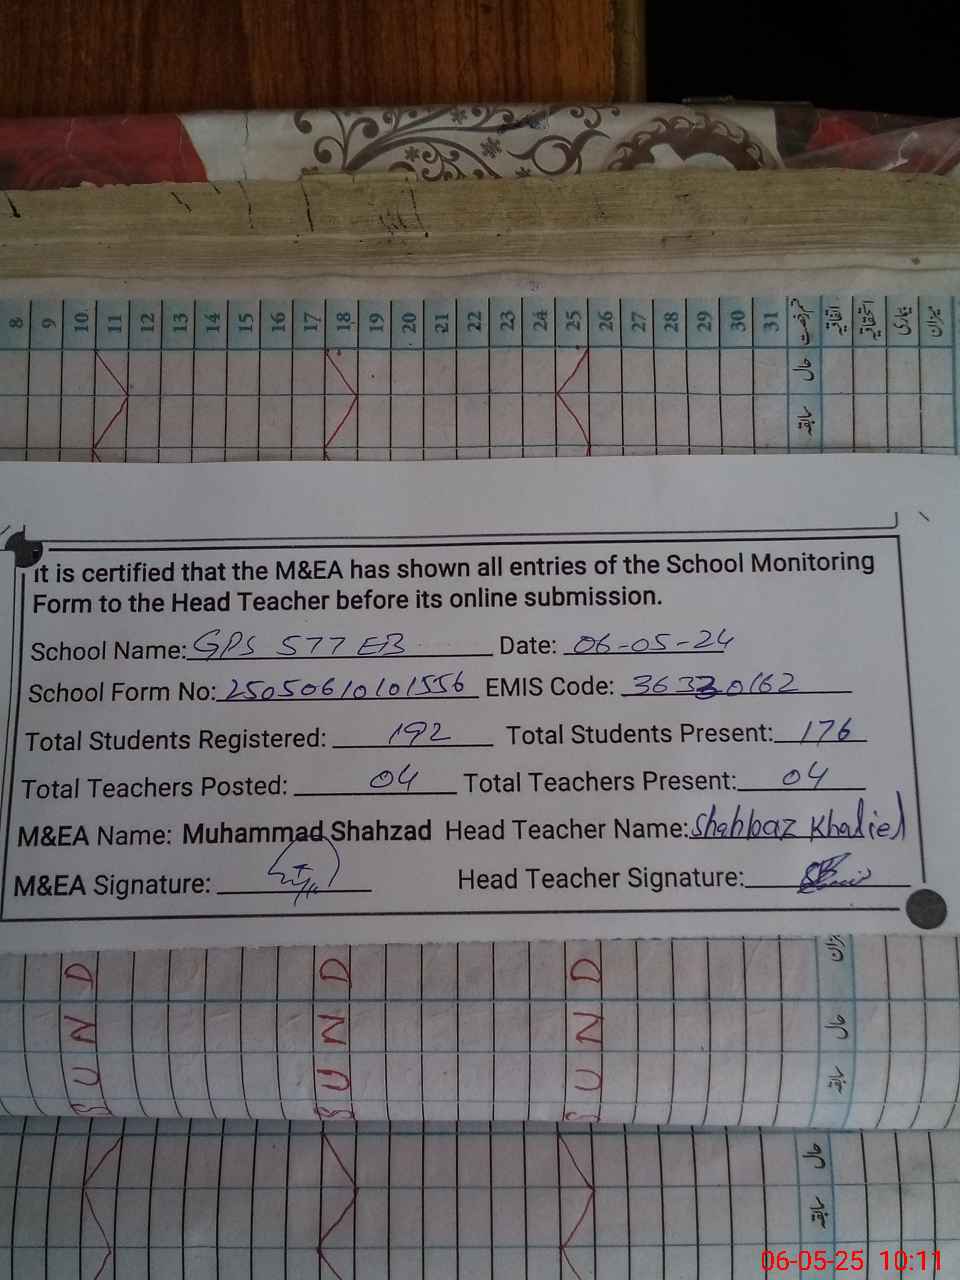 8 9 10 11 12 13 14 15 16 17 18 19 20 21 22 23 24 25 26 27 28 29 30 31 اتفاقیہ استحقاقیہ بیماری میزان
حال
سابقہ
It is certified that the M&EA has shown all entries of the School Monitoring
Form to the Head Teacher before its online submission.
School Name: GPS 577 EB Date: 06-05-24
School Form No: 25050610101556 EMIS Code: 36330162
Total Students Registered: 192 Total Students Present: 176
Total Teachers Posted: 04 Total Teachers Present: 04
M&EA Name: Muhammad Shahzad Head Teacher Name: Shahbaz Khaliel
M&EA Signature: Head Teacher Signature:
SUND SUND SUND
میزان
حال
سابقہ
حال
سابقہ
06-05-25 10:11